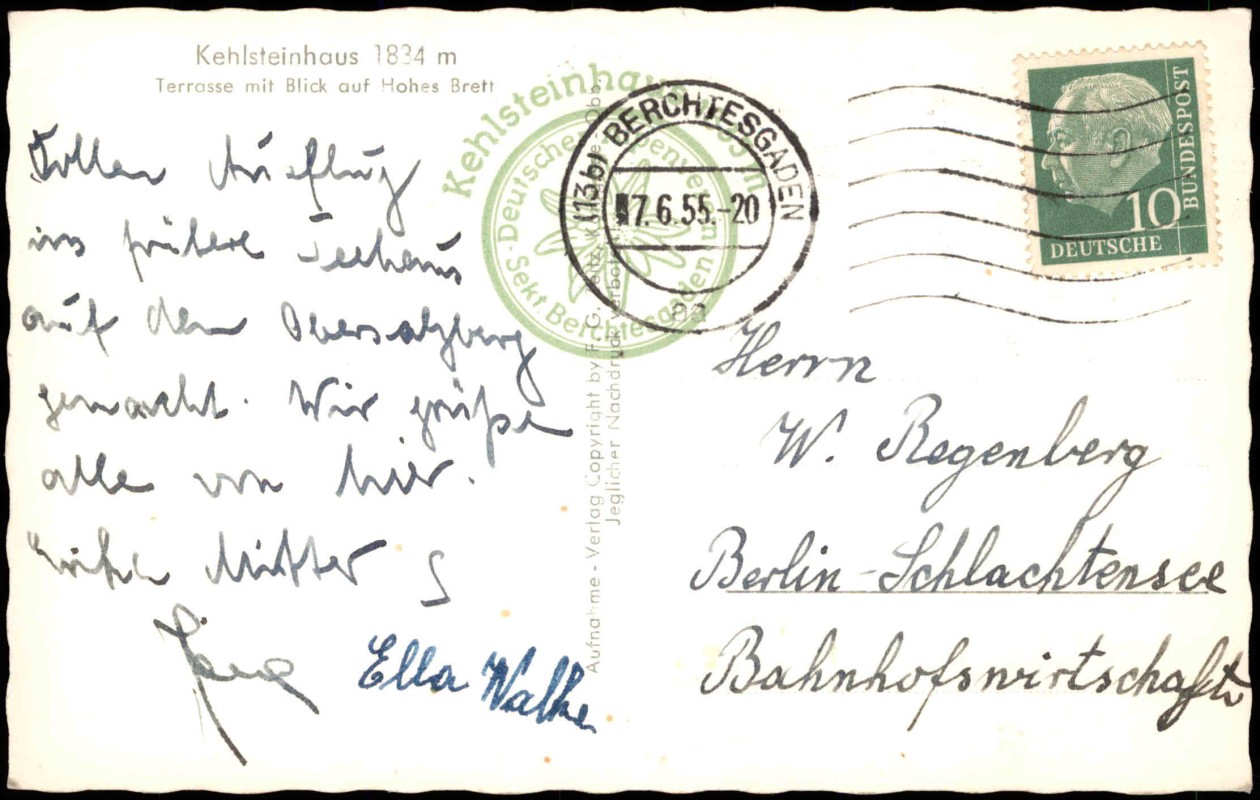 Kehlsteinhaus 1834 m
Terrasse mit Blick auf Hohes Brett
Tollen Ausflug
ins frühere Teehaus
auf dem Obersalzberg
gemacht. Wir grüßen
alle von hier.
Mutter
Ella
Kehlsteinhaus
Deutscher Alpenverein
Sekt Berchtesgaden
(13b) BERCHTESGADEN
7.6.55.-20
Aufnahme-Verlag Copyright by F. G.
Jeglicher Nachdruck verboten
DEUTSCHE
BUNDESPOST
10
Herrn
W. Regenberg
Berlin-Schlachtensee
Bahnhofswirtschaft